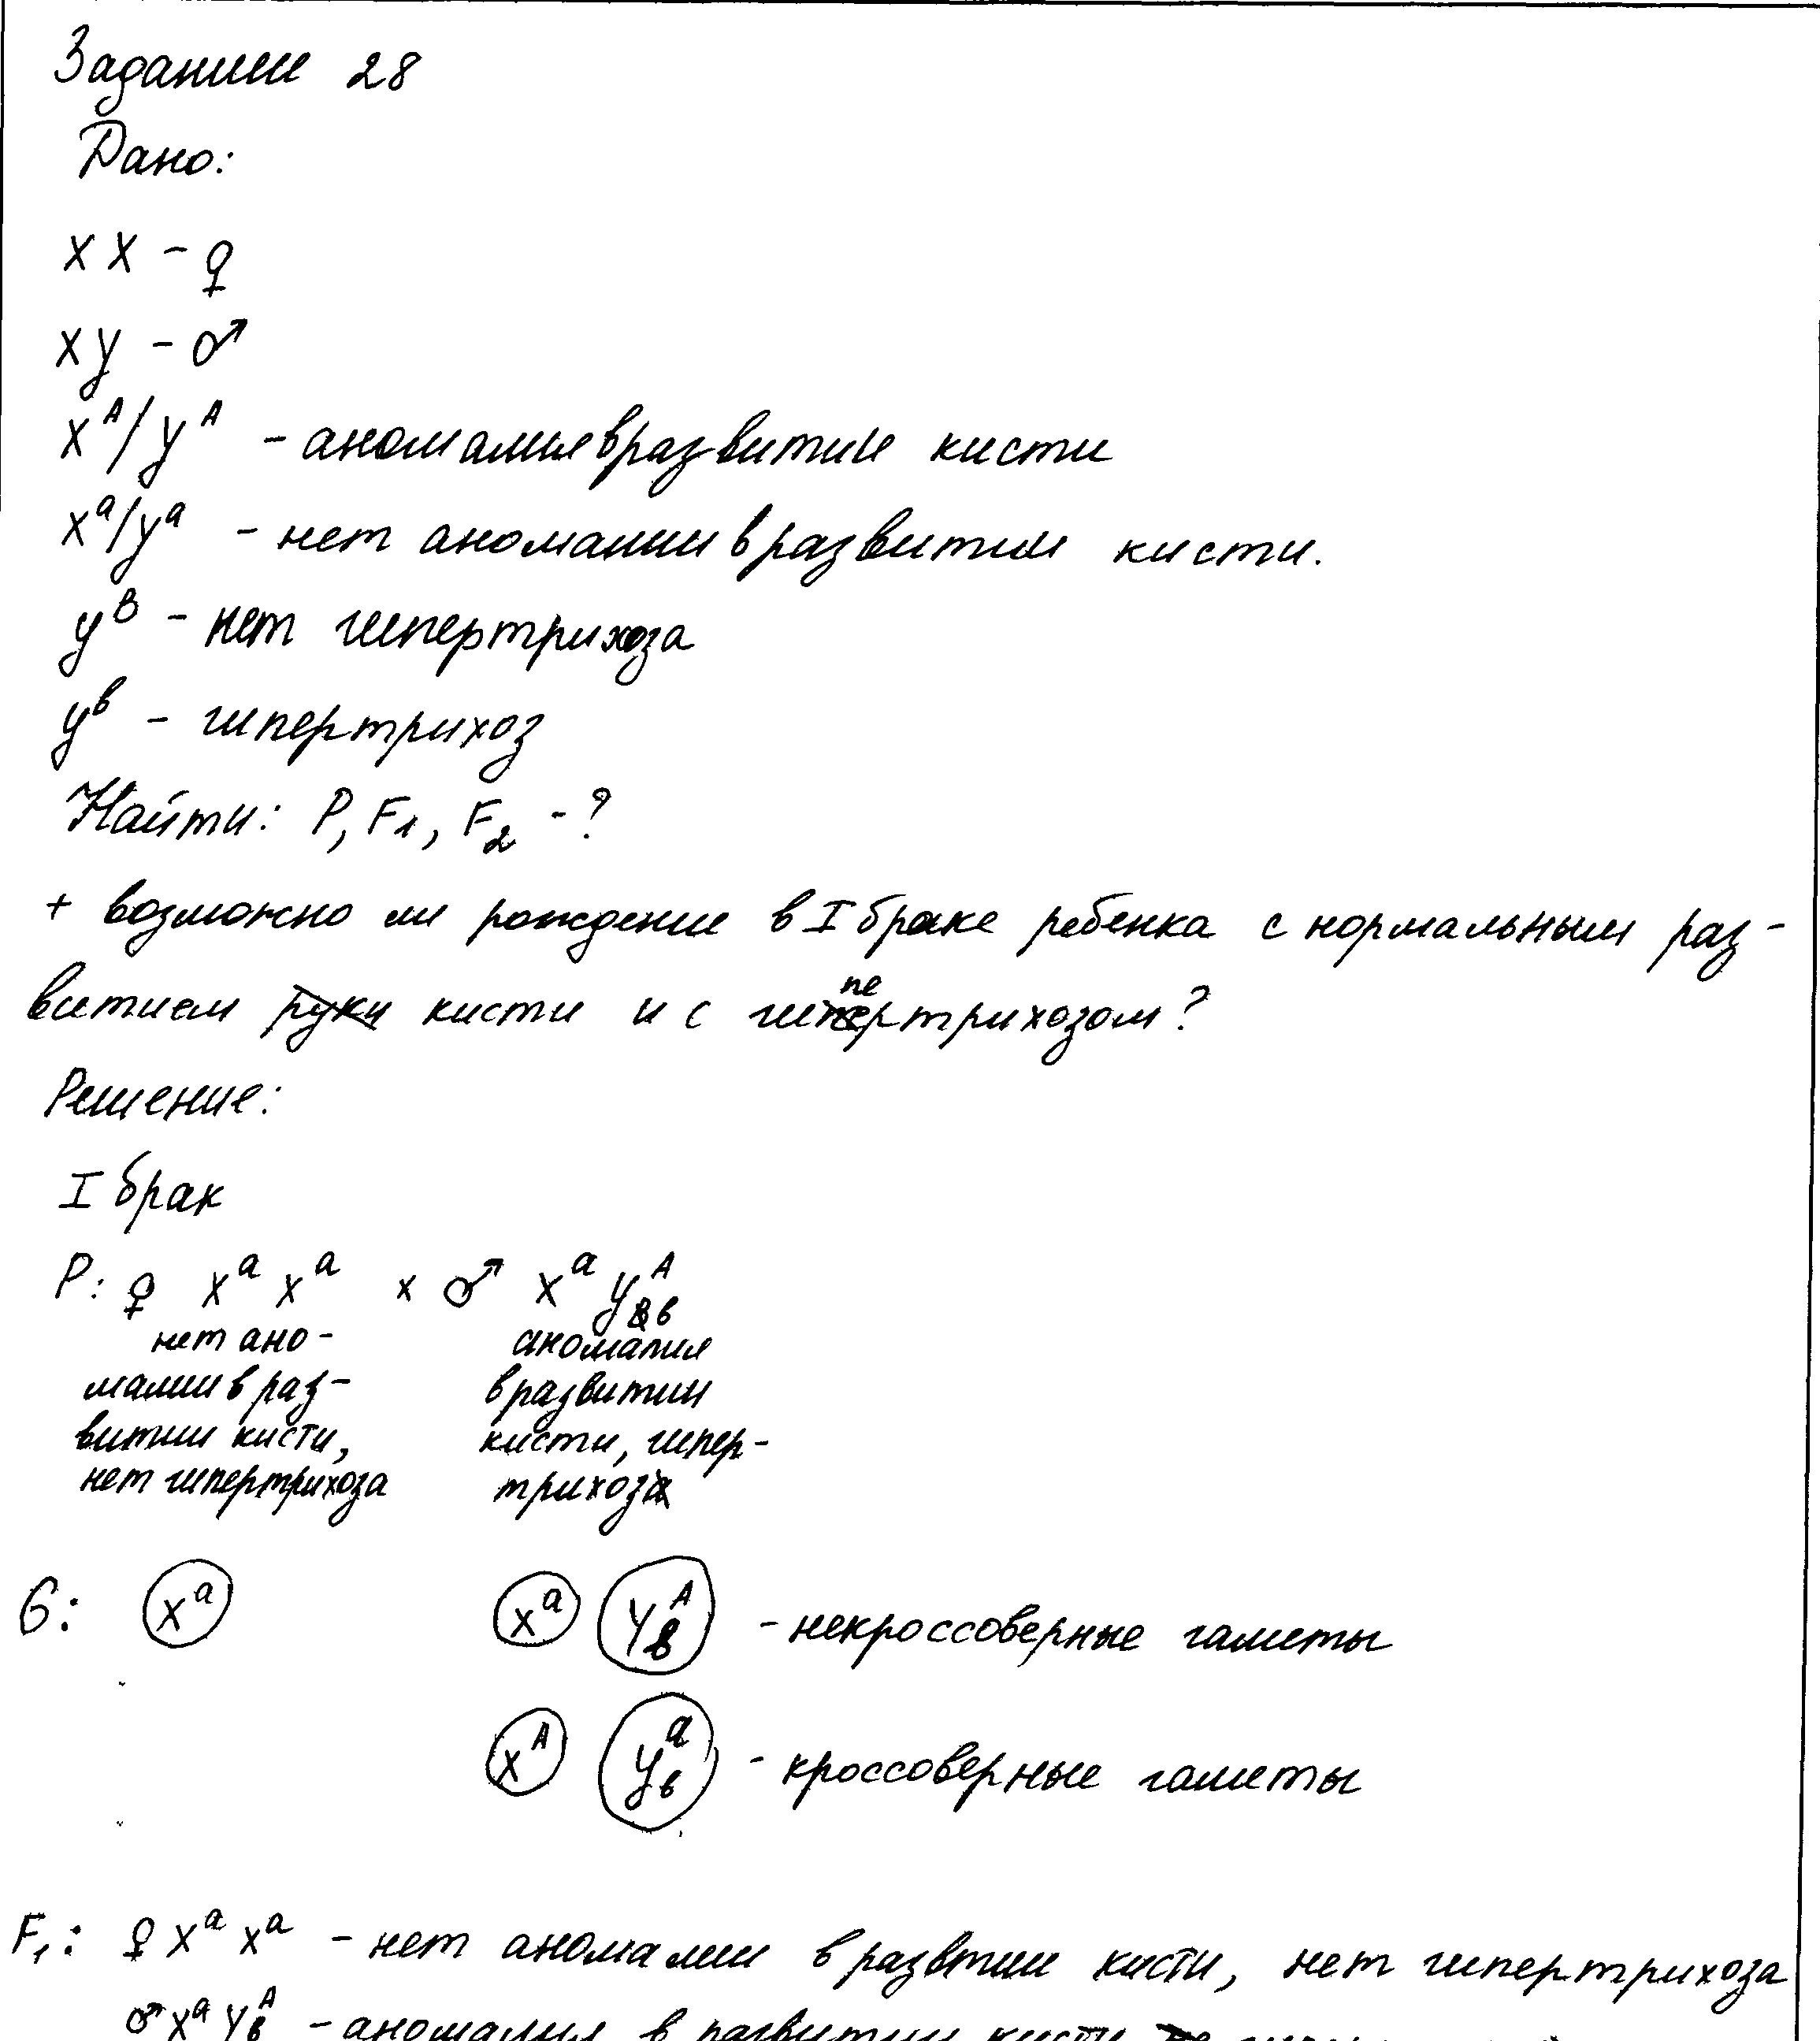 Задание 28
Дано:
XX - ♀
XY - ♂
X^A/Y^A - аномалия в развитии кисти
X^a/Y^a - нет аномалии в развитии кисти.
Y^B - нет гипертрихоза
Y^b - гипертрихоз
Найти: P, F1, F2 - ?
+ возможно ли рождение в I браке ребенка с нормальным раз-
витием руки кисти и с гипертрихозом?
Решение:
I брак
P: ♀ X^a X^a × ♂ X^a Y^A_b
нет ано- аномалия
малии в раз- в развитии
витии кисти, кисти, гипер-
нет гипертрихоза трихоз
G: X^a X^a Y^A_b - некроссоверные гаметы
X^A Y^a_b - кроссоверные гаметы
F1: ♀ X^a X^a - нет аномалии в развтии кисти, нет гипертрихоза
♂ X^a Y^A_b - аномалия в развитии кисти